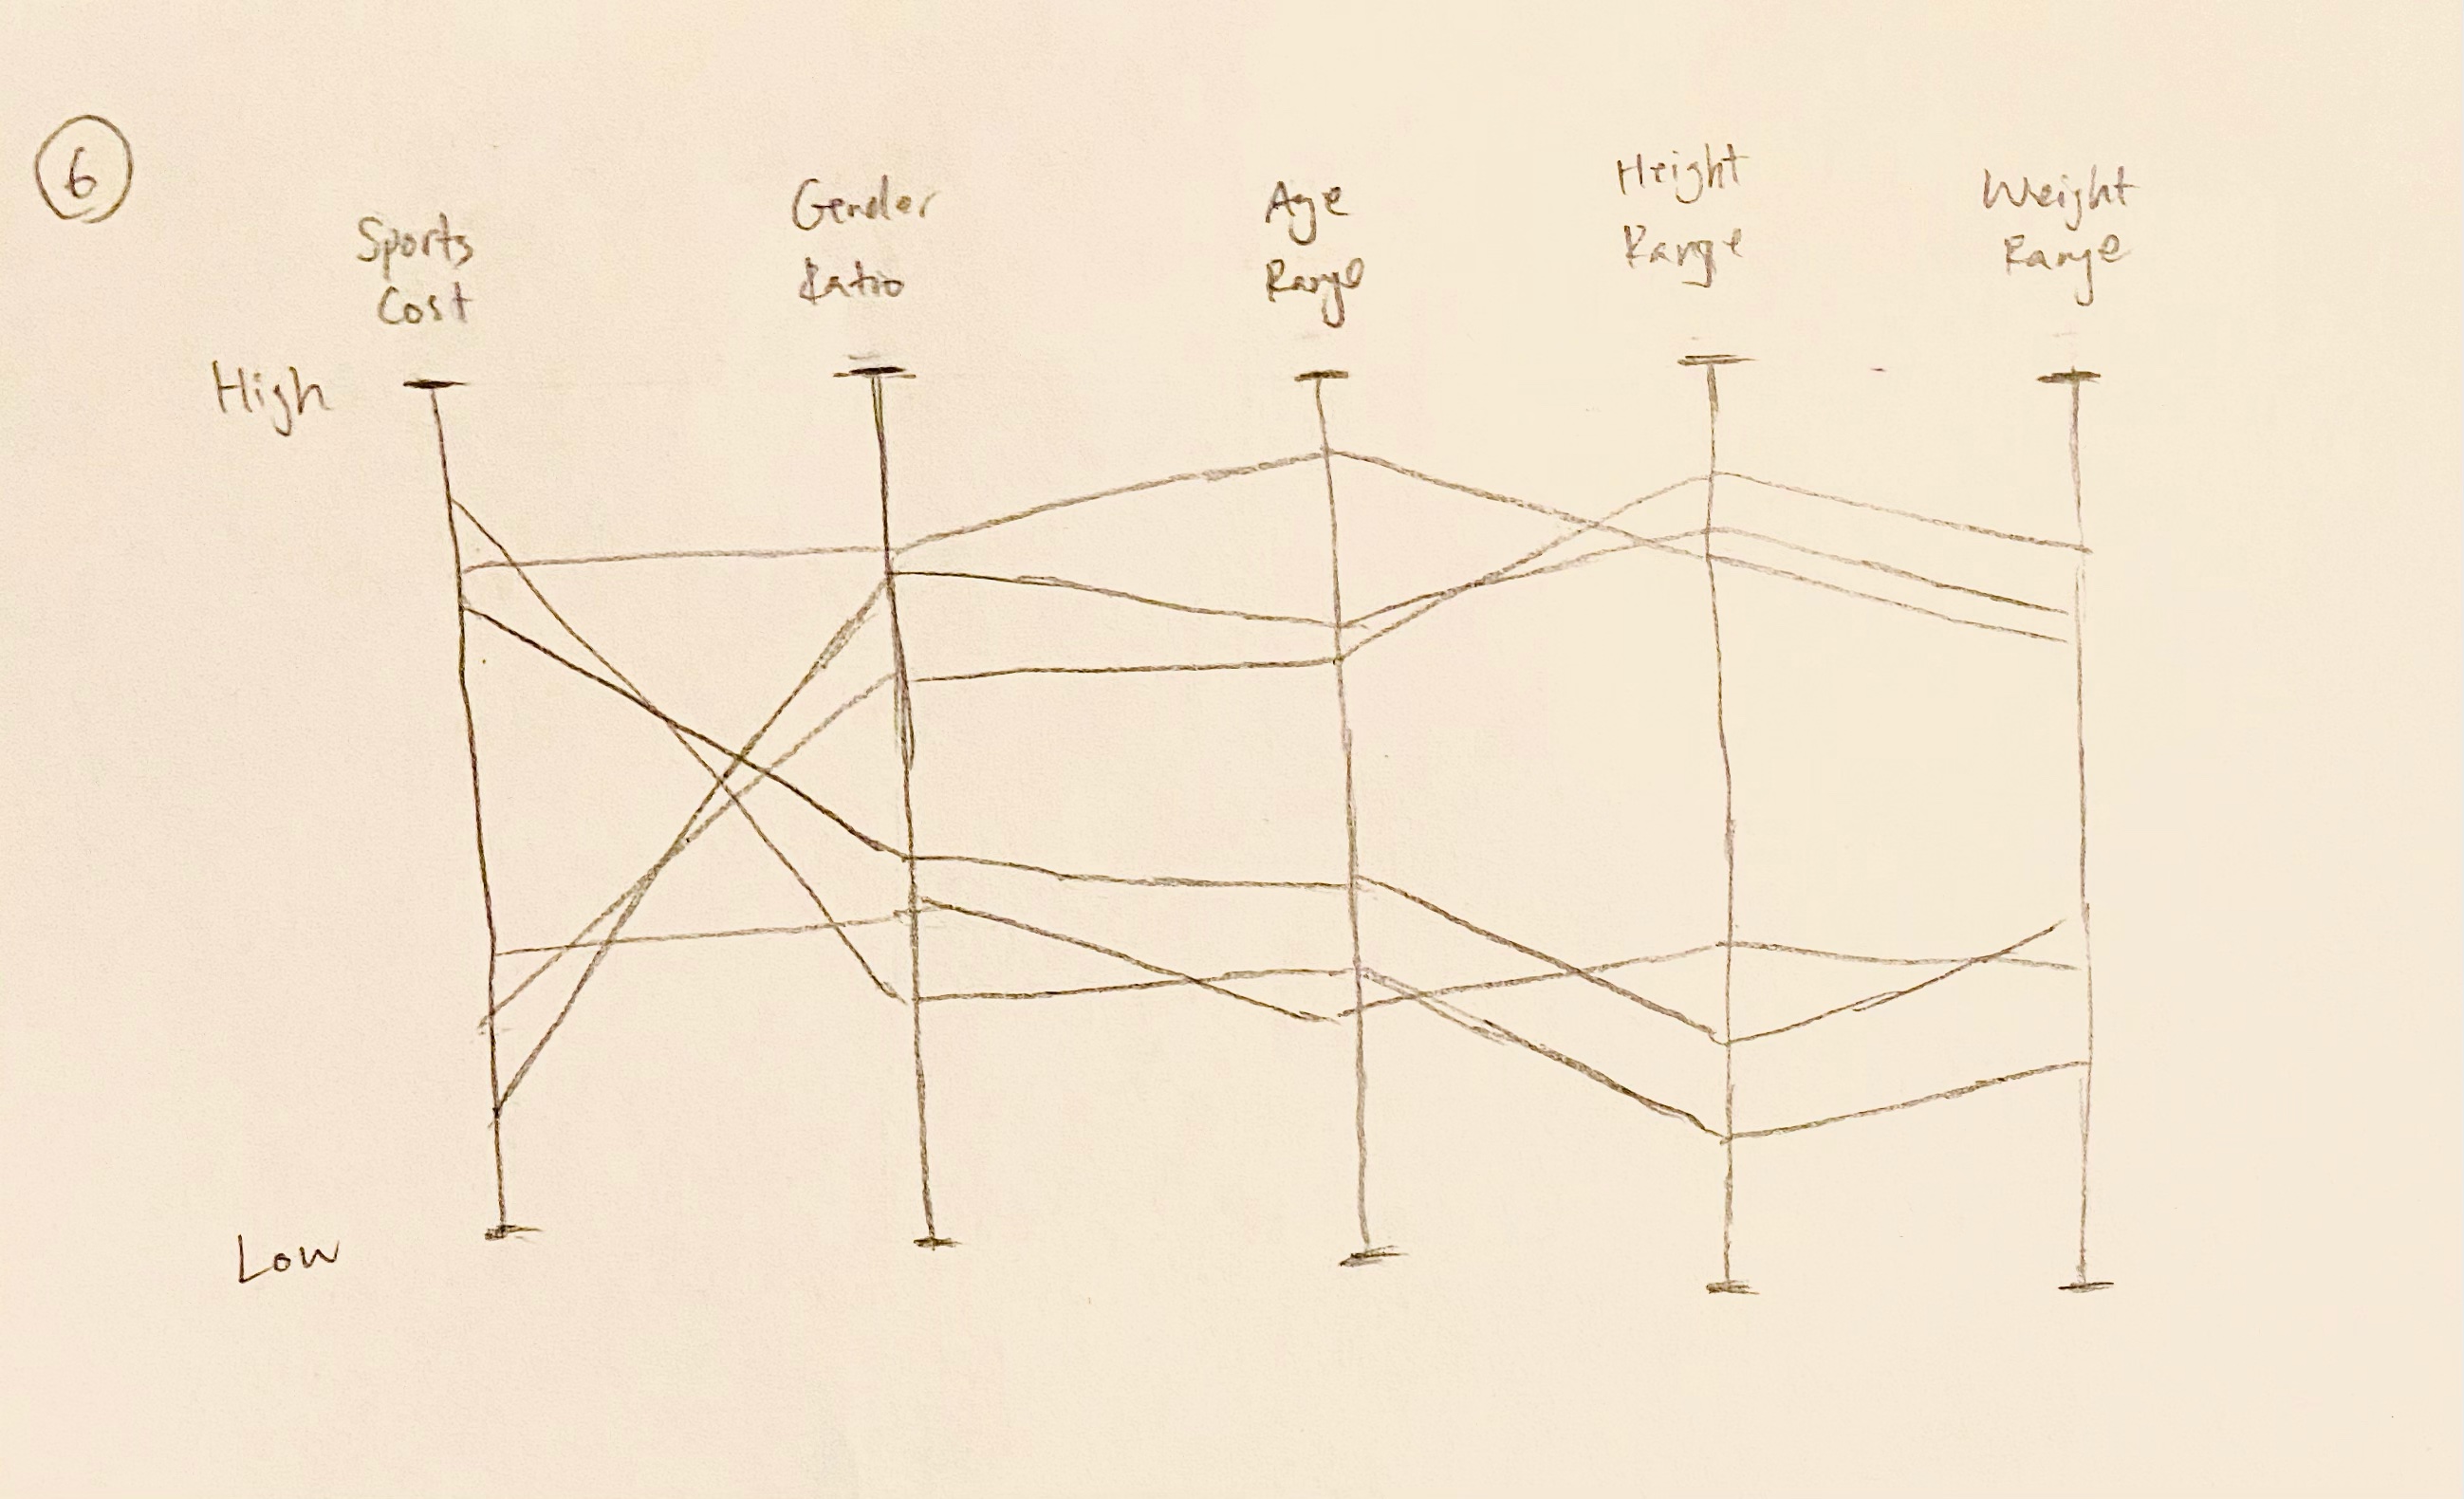 6
Sports
Cost
Gender
Ratio
Age
Range
Height
Range
Weight
Range
High
Low